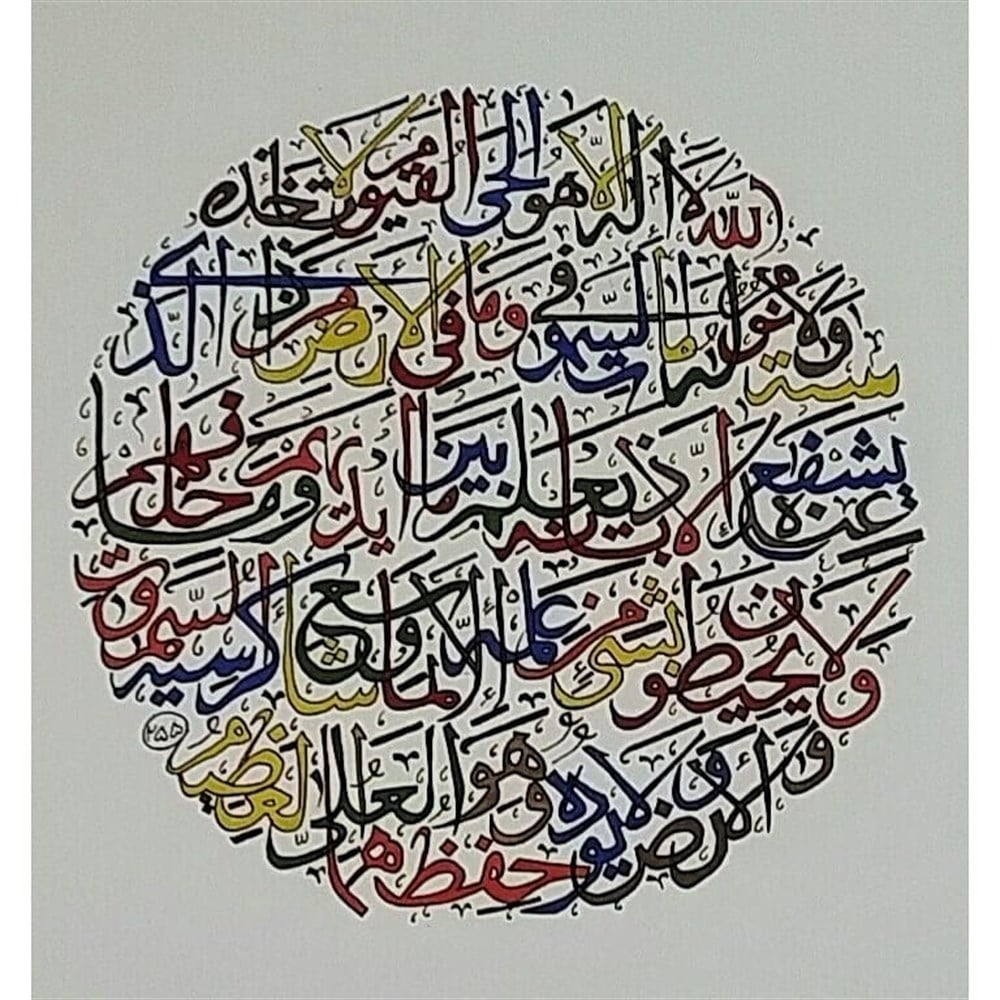 الله لا إله إلا هو الحي القيوم لا تأخذه
سنة ولا نوم له ما في السموات وما في الأرض من ذا الذي
يشفع عنده إلا بإذنه يعلم ما بين أيديهم وما خلفهم
ولا يحيطون بشيء من علمه إلا بما شاء وسع كرسيه السموات
والأرض ولا يؤده حفظهما وهو العلي العظيم ٢٥٥